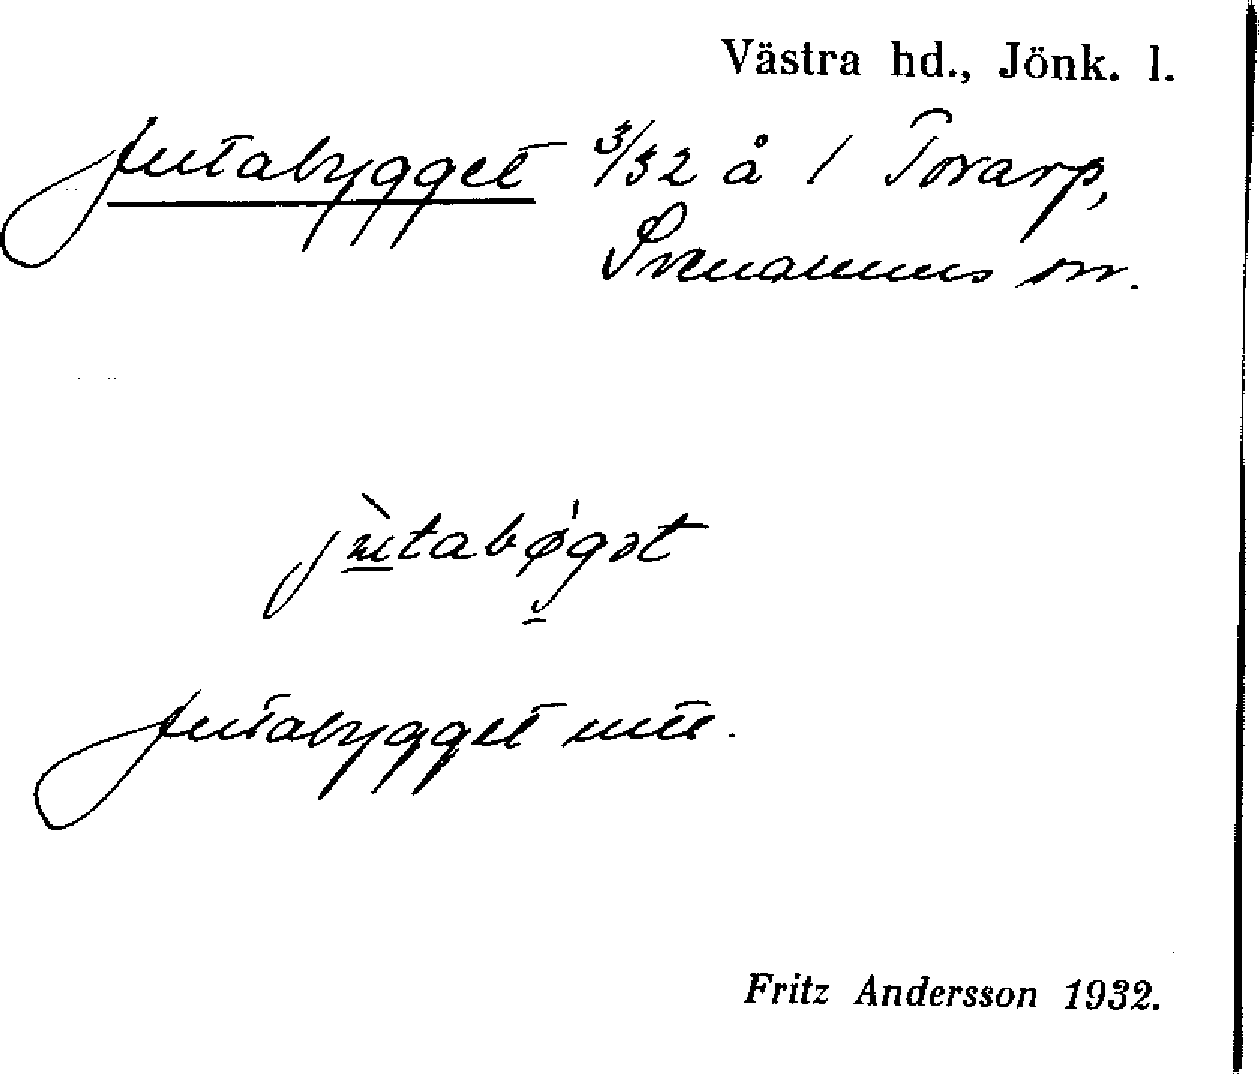 Västra hd., Jönk. l.
Jutabygget 3/32 å 1 Torarp,
Svenarums sn.
jùtabø̍gət
Jutabygget utt.
Fritz Andersson 1932.